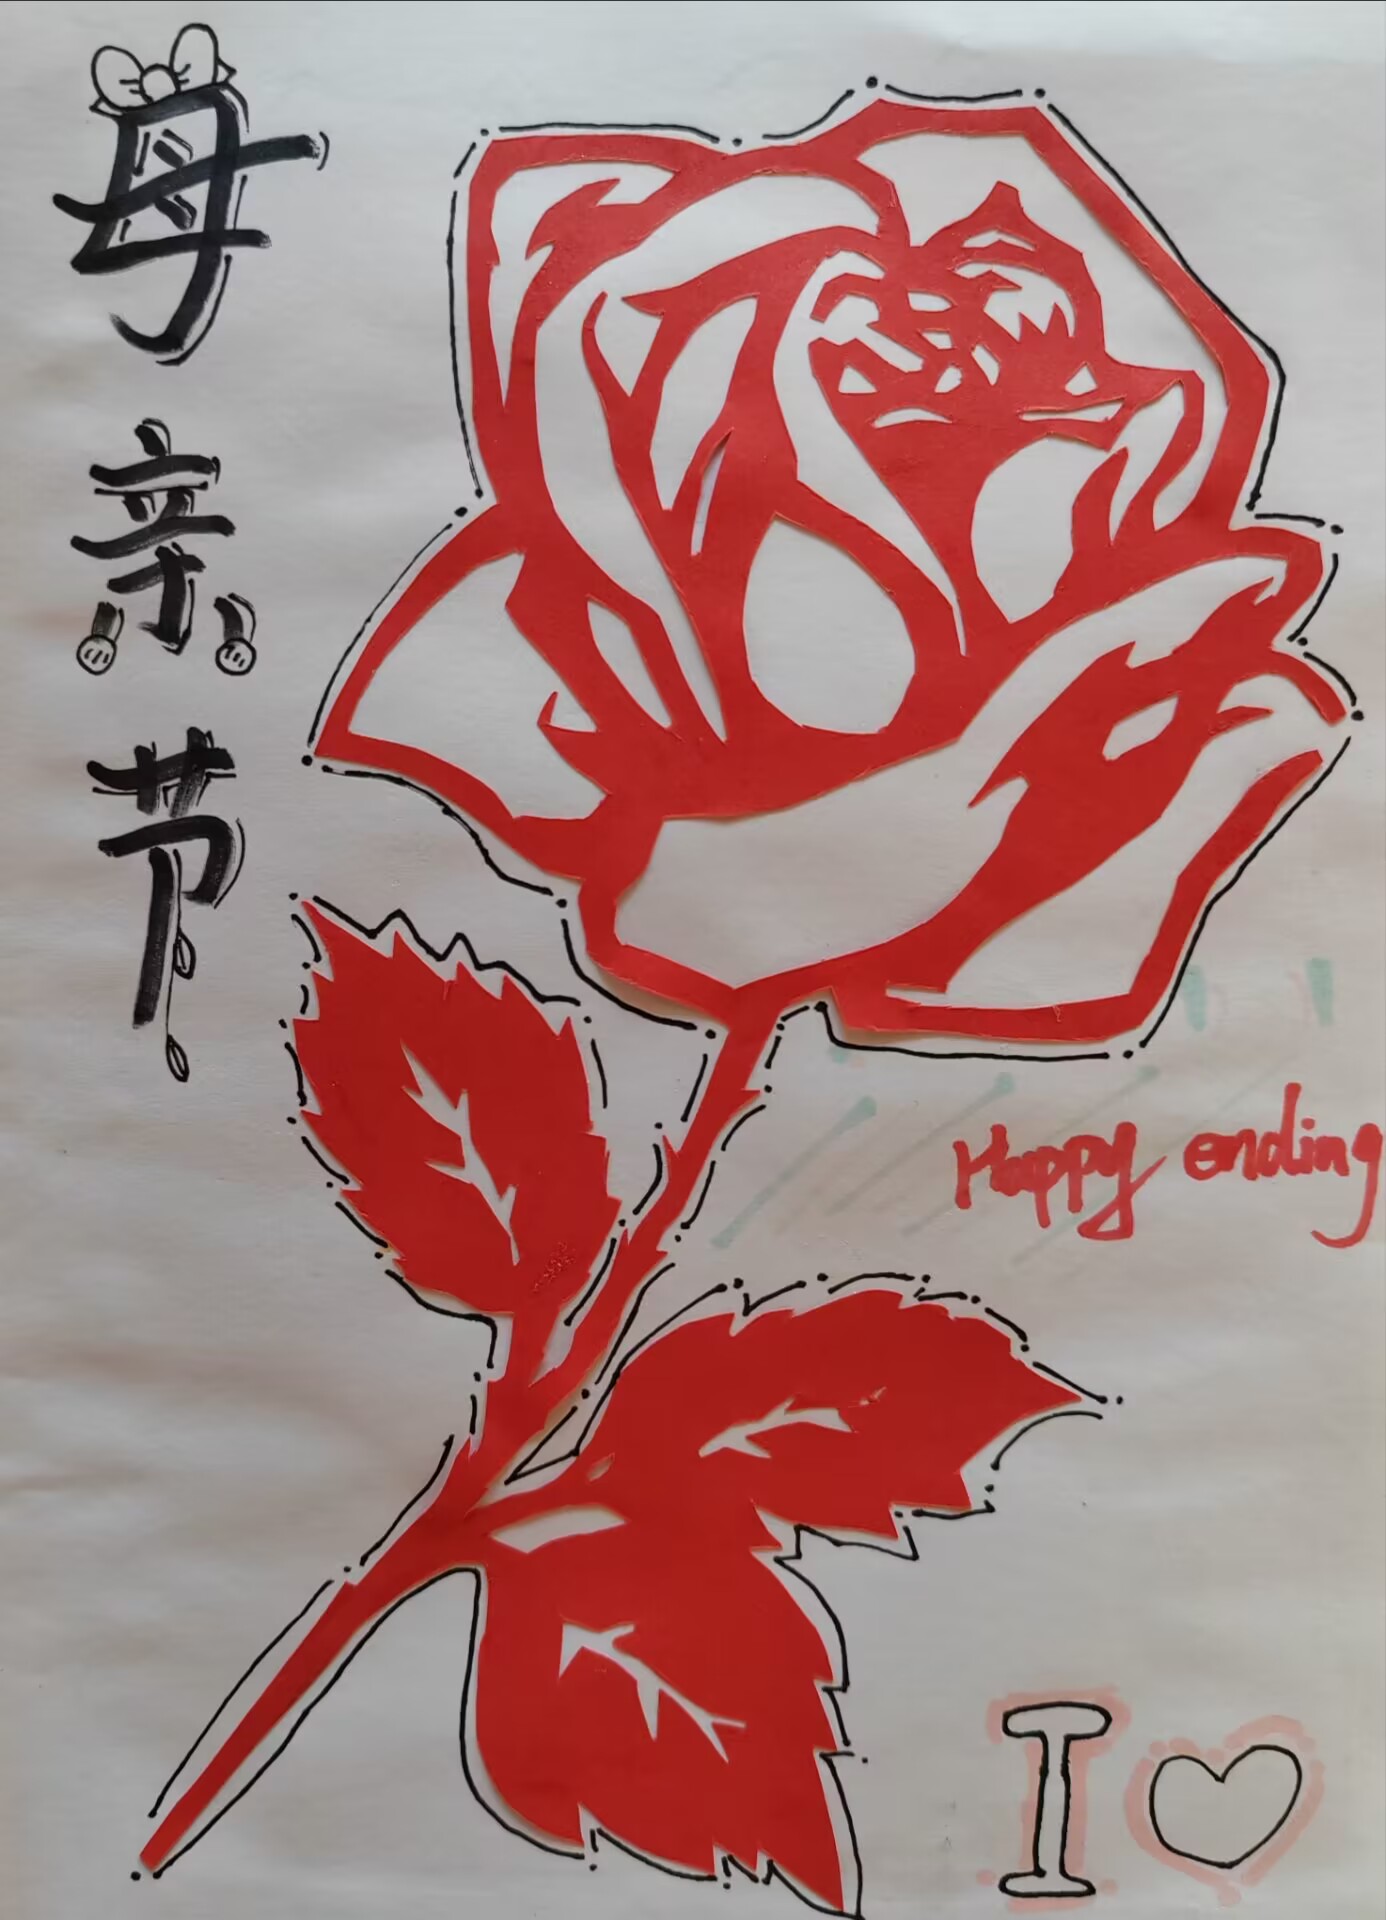 母亲节
Happy ending
I